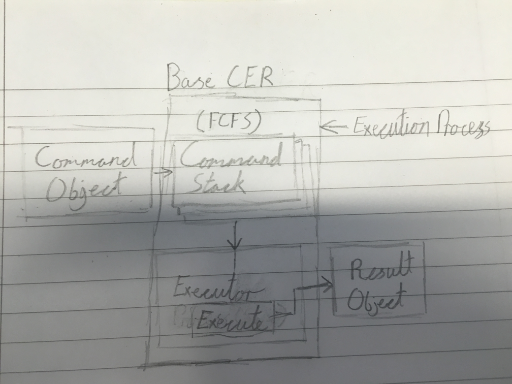 Base CER
(FCFS)
← Execution Process
Command
Object
Command
Stack
Executor
Execute
Result
Object